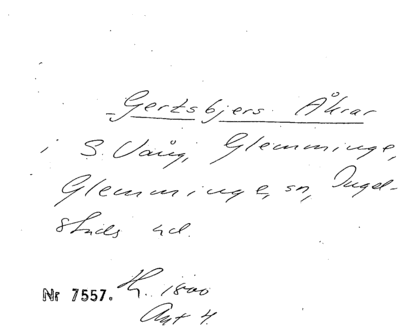 Gertsbjers Åkrar
i S. Vång, Glemminge,
Glemminge, sn, Ingel-
stads hd.
Nr 7557. H. 1800
Akt 4.